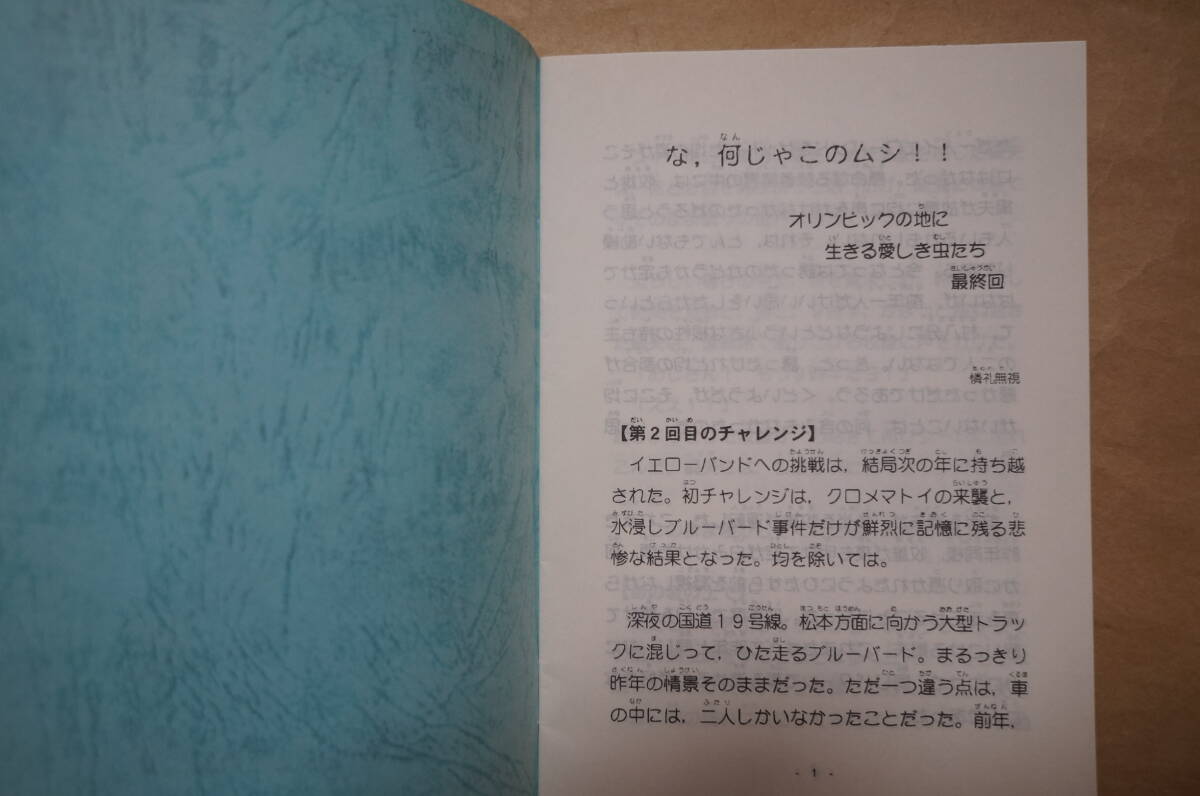 な，何じゃこのムシ！！
オリンピックの地に
生きる愛しき虫たち
最終回
憐礼無視
【第２回目のチャレンジ】
イエローバンドへの挑戦は，結局次の年に持ち越
された。初チャレンジは，クロメマトイの来襲と，
水浸しブルーバード事件だけが鮮烈に記憶に残る悲
惨な結果となった。均を除いては。
深夜の国道１９号線。松本方面に向かう大型トラッ
クに混じって，ひた走るブルーバード。まるっきり
昨年の情景そのままだった。ただ一つ違う点は，車
の中には，二人しかいなかったことだった。前年，
- 1 -